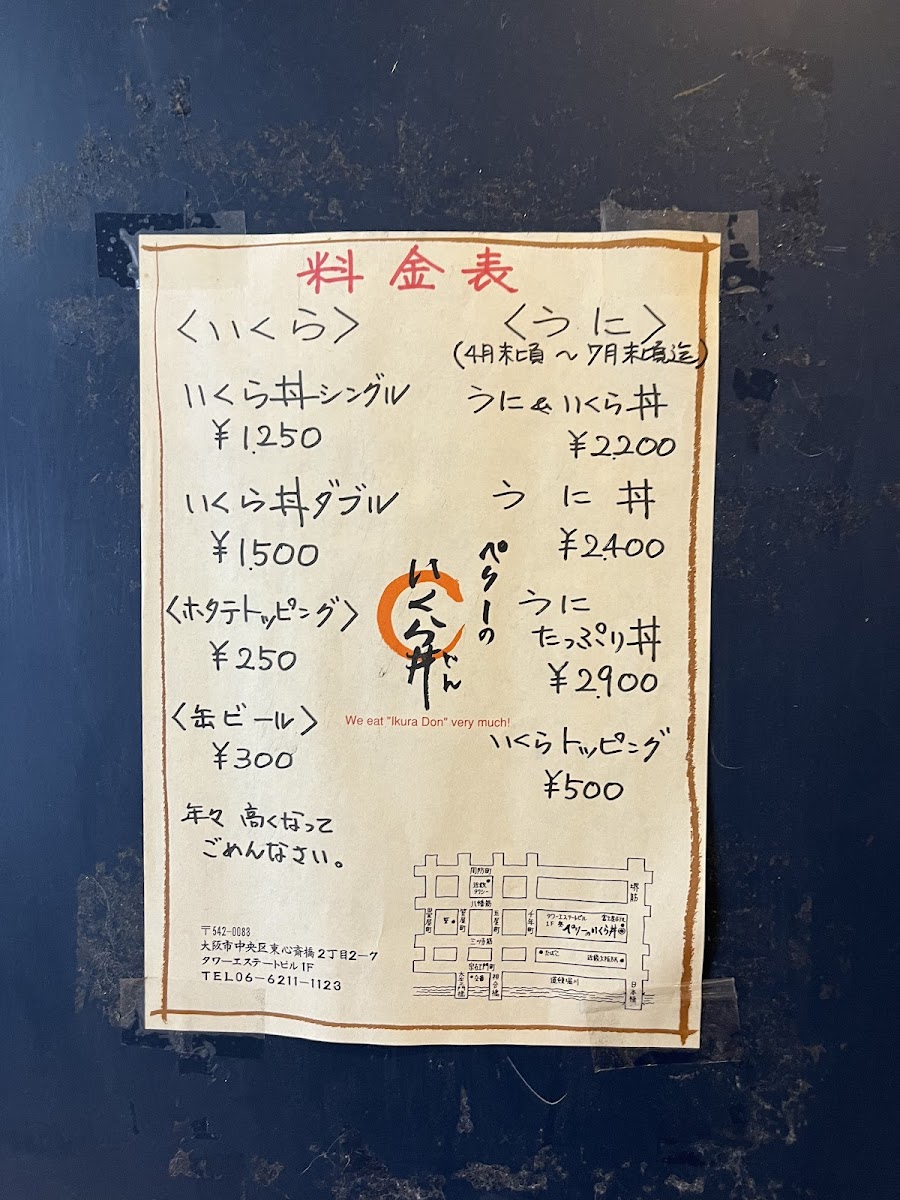 料金表
〈いくら〉
いくら丼シングル
¥1,250
いくら丼ダブル
¥1,500
〈ホタテトッピング〉
¥250
〈缶ビール〉
¥300
年々 高くなって
ごめんなさい。
〈うに〉
(4月末頃〜7月末頃迄)
うに&いくら丼
¥2,200
うに丼
¥2,400
うに
たっぷり丼
¥2,900
いくらトッピング
¥500
ペリーの
いくら丼
どん
We eat "Ikura Don" very much!
〒542-0083
大阪市中央区東心斎橋2丁目2-7
タワーエステートビル1F
TEL06-6211-1123
周防町
近鉄
タクシー
八幡筋
堺筋
畳屋町
笠屋町
玉屋町
千年町
タワーエステートビル
1F
ペリーのいくら丼
三ツ寺筋
たばこ
宗右衛門町
交番
相合橋
道頓堀川
日本橋